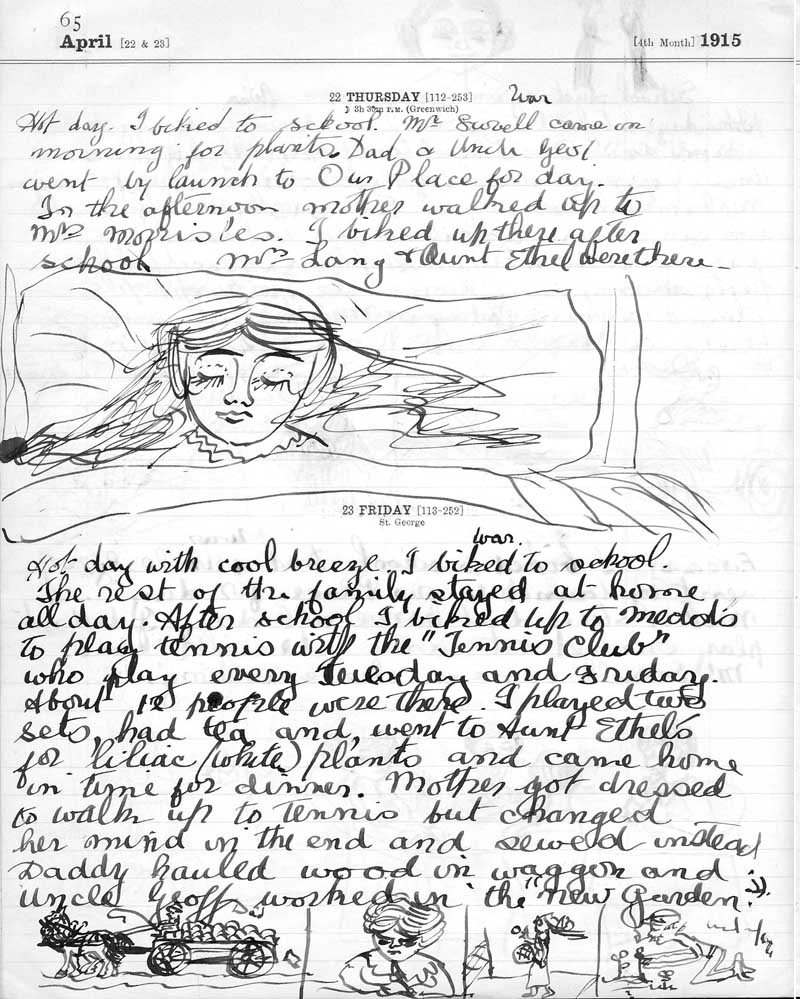 65
April [22 & 23] [4th Month] 1915
22 THURSDAY [112-253] War
3h 39m P.M. (Greenwich)
Hot day. I biked to school. Mr Sewell came on
morning for plants. Dad & Uncle Geof
went by launch to Our Place for day.
In the afternoon mother walked up to
Mrs Morris'es. I biked up there after
school Mrs Lang & Aunt Ethel were there
23 FRIDAY [113-252]
St. George
War.
Hot day with cool breeze. I biked to school.
The rest of the family stayed at home
all day. After school I biked up to
to play tennis with the "Tennis Club"
who play every Tuesday and Friday.
About 12 people were there. I played two
sets, had tea and, went to Aunt Ethel's
for liliac (white) plants and came home
in time for dinner. Mother got dressed
to walk up to tennis but changed
her mind in the end and sewed instead
Daddy hauled wood in waggon and
Uncle Geoff worked in the "New Garden".